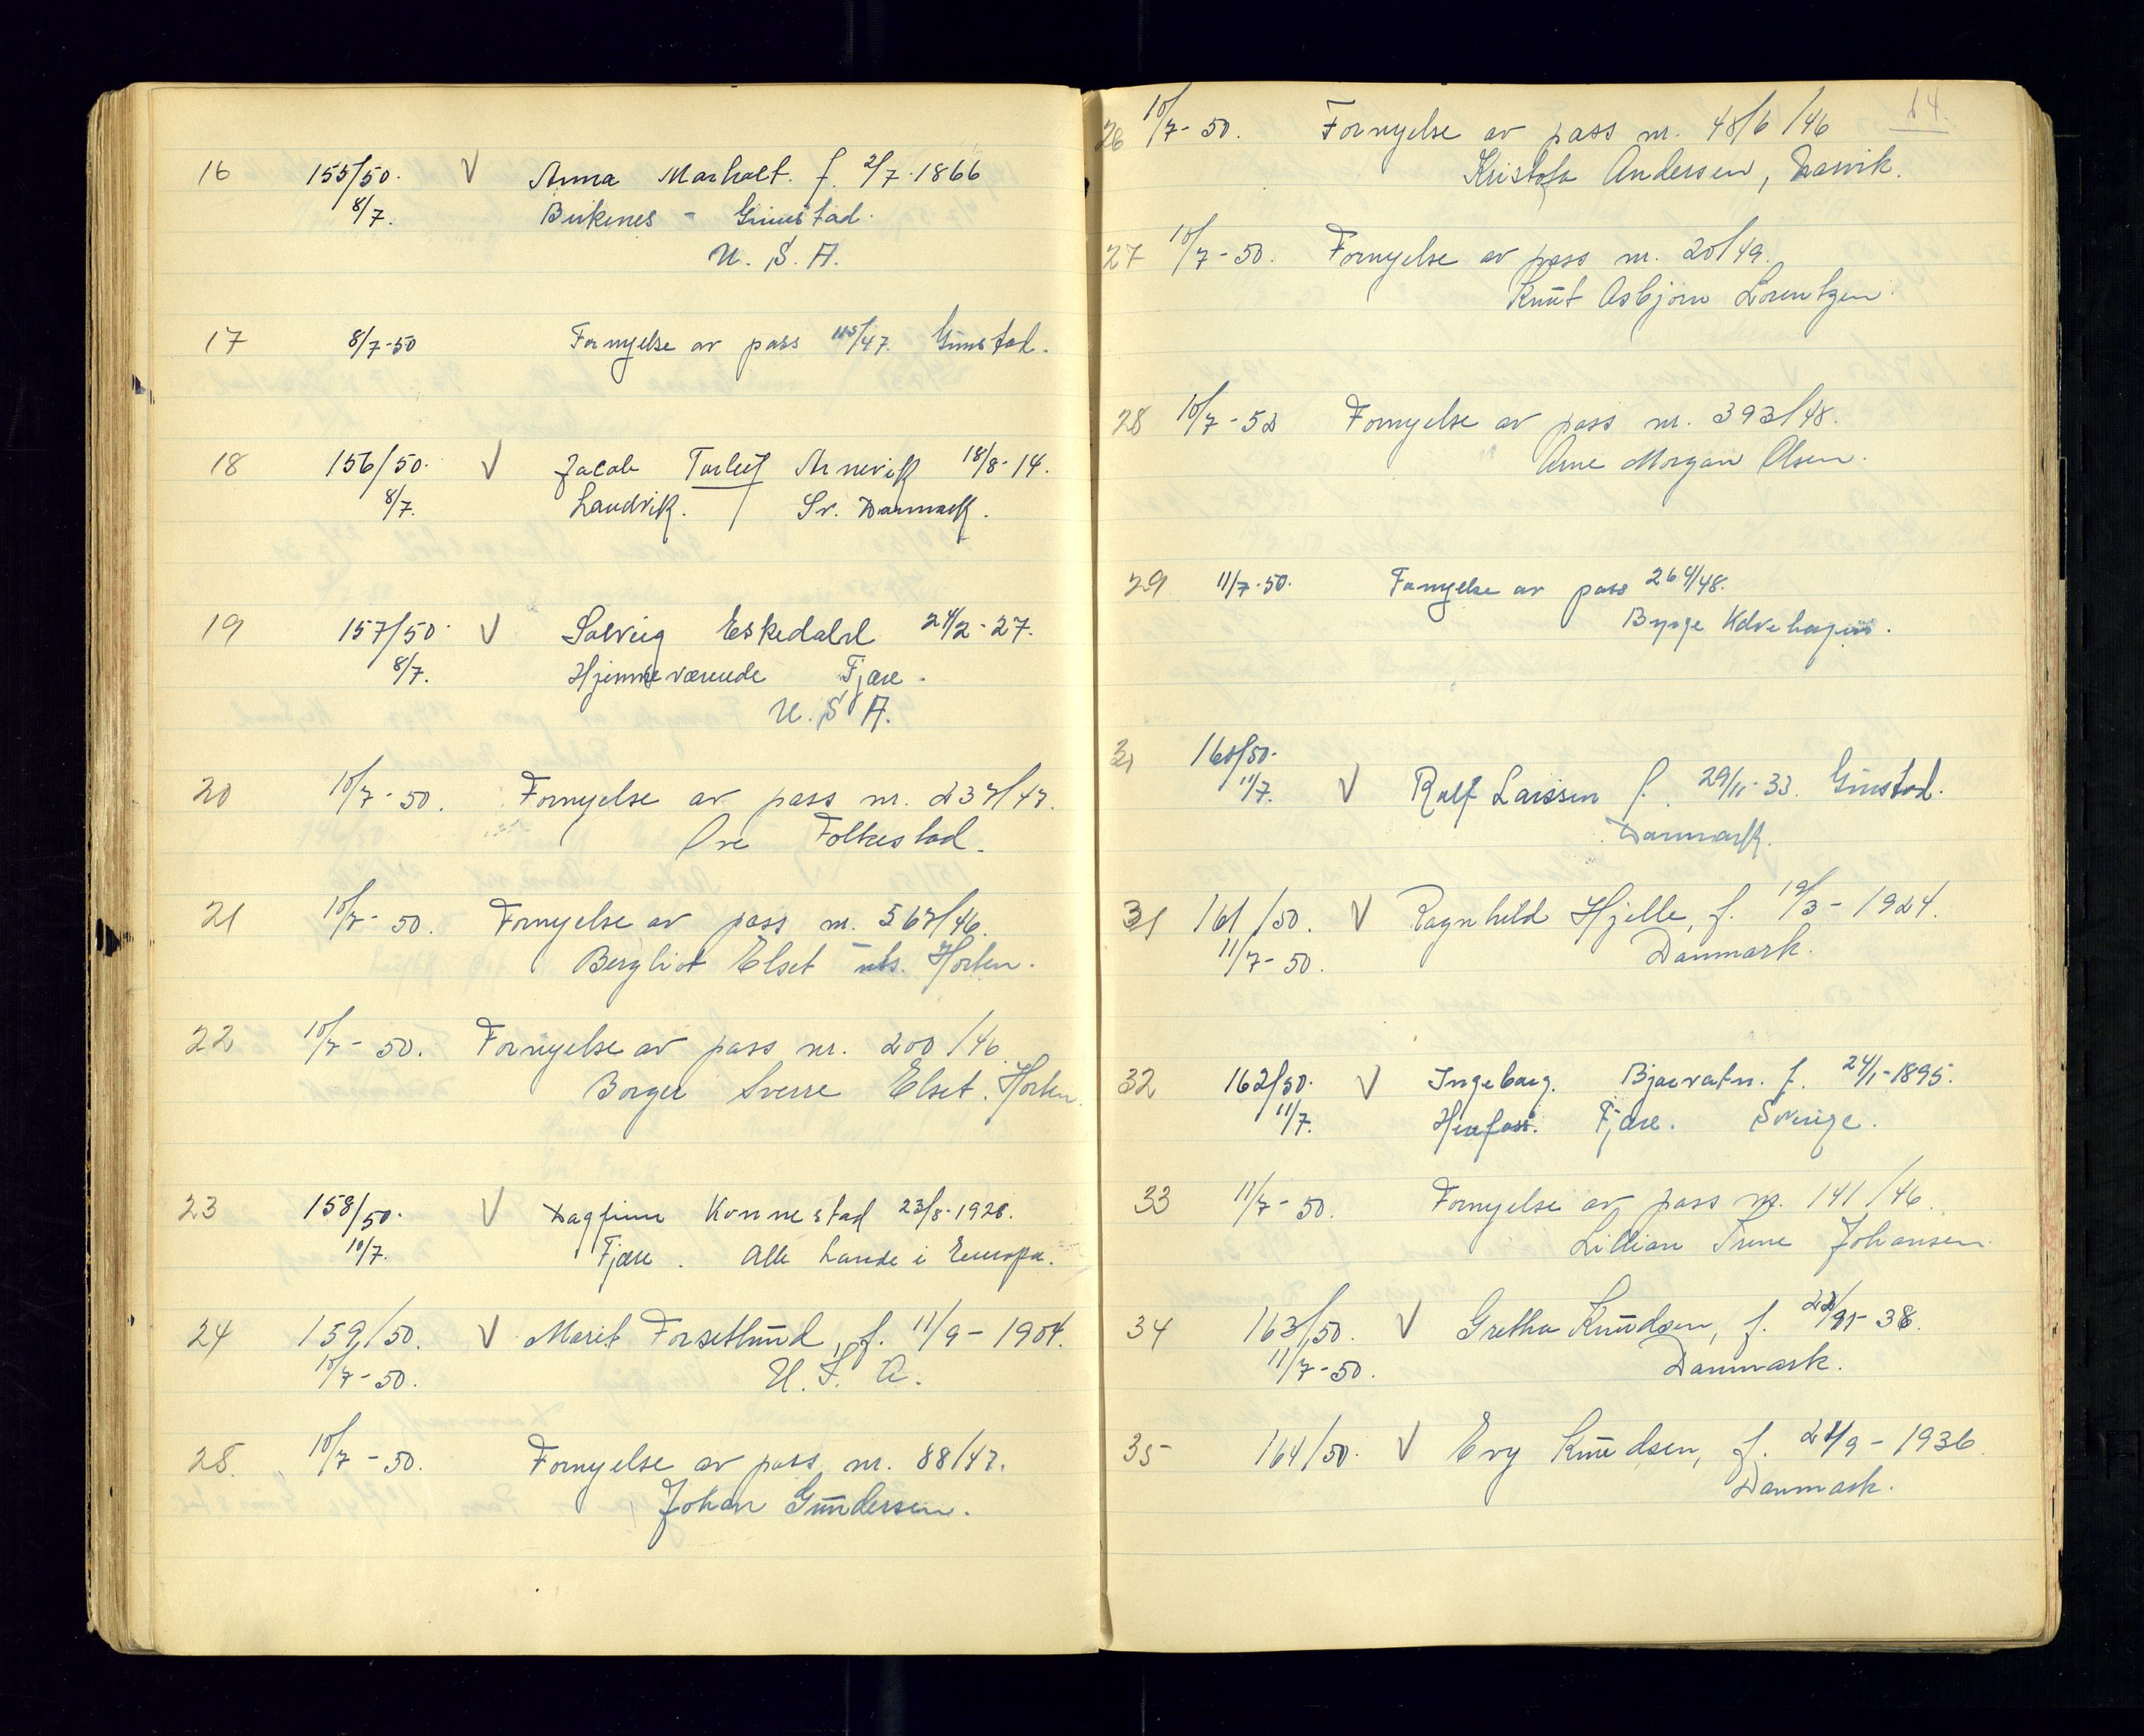 16 155/50. V Anna Marholt. f. 2/7.1866
8/7. Birkenes - Grimstad.
U. S. A.
17 8/7-50 Fornyelse av pass 115/47. Grimstad.
18 156/50. V Jacob Tarleif Arnevik 18/8-14.
8/7. Landvik. Sv. Danmark.
19 157/50. V Solveig Eskedahl 24/2-27.
8/7. Hjemmeværende Fjære.
U. S A.
20 10/7-50. Fornyelse av pass nr. 237/47.
Ove Folkestad.
21 10/7-50. Fornyelse av pass nr. 567/46.
Bergliot Elset uts. Horten.
22 10/7-50. Fornyelse av pass nr. 200/46.
Borger Sverre Elset. Horten.
23 158/50. V Dagfinn Konnestad 23/8-1928.
10/7. Fjære. Alle lande i Europa.
24 159/50. V Marit Forsetlund, f. 11/9-1904.
10/7-50. U. S. A.
25. 10/7-50. Fornyelse av pass nr. 88/47.
Johan Gundersen.
64.
26 10/7-50. Fornyelse av pass nr. 48/6/46
Kristofa Andersen,
27 10/7-50. Fornyelse av pass nr. 20/49.
Knut Asbjørn Lorentzen.
28 10/7-50 Fornyelse av pass nr. 393/48.
Arne Morgan Olsen.
29 11/7-50. Fornyelse av pass 264/48.
160/50.
11/7. V Ralf Larssen f. 29/11-33. Grimstad.
Danmark.
31 161/50. V Ragnhild Hjelle, f. 19/3-1924.
11/7-50. Danmark.
32 162/50. V Ingebarg. Bjorvatn. f. 24/1-1895.
11/7. Fjære. Sverige.
33 11/7-50. Fornyelse av pass nr. 141/46.
Lillian Irene Johansen.
34 163/50. V Gretha Knudsen, f. 38.
11/7-50. Danmark.
35 164/50. V Evy Knudsen, f. 24/9-1936.
Danmark.